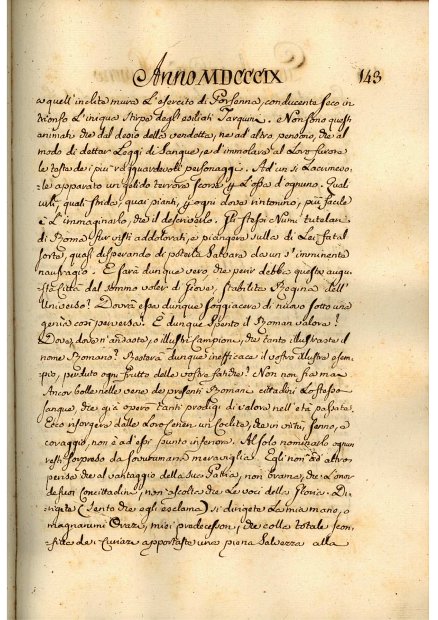 Anno MDCCCIX 143
a quell'inclite mura l'esercito di Porsenna, conducente seco in
trionfo l'iniqua stirpe degli esiliati Tarquinj. Non sono questi
animati che dal desio della vendetta, ne ad altro pensano, che al
modo di dettar Leggi di Sangue, e d'immolare al Loro furore
le teste dei più ragguardevoli personaggi. Ad un si Lacrimevo-
le apparato un gelido terrore scorre p l'ossa d'ognuno. Quali
urli, quali strida, quai pianti, p ogni dove rintonino, più facile
è l'immaginarlo, che il descriverlo. Gli stessi Numi tutelari
di Roma fur visti addolorati, e piangere sulla di Lei fatal
sorte, quasi disperando di poterla Salvare da un'imminente
naufragio. E sarà dunque vero, che perir debba questa augu-
sta Città dal sommo voler di Giove, stabilita Regina dell'
Universo? Dovrà essa dunque soggiacere di nuovo sotto una
genìa così perversa? È dunque spento il Roman valore?
Dove, dove n'andaste, o illustri Campioni, che tanto illustraste il
nome Romano? Resterà dunque inefficace il vostro illustre esem-
pio, perduto ogni frutto delle vostre fatiche? Non non fia mai
Ancor bolle nelle vene de presenti Romani cittadini lo stesso
sangue, che già operò tanti prodigi di valore nell'età passate.
Ecco insorgere dalle Loro ceneri un Coclite, che in virtù, senno, e
coraggio, non è ad essi punto inferiore. Al solo nominarlo ognun
resti sorpreso da sovrumana meraviglia. Egli non ad altro
pensa che al vantaggio della sua Patria, non brama, che l'onor
de suoi Concittadini, non ascolta che le voci della Gloria. Di-
rigete (sento che egli esclama) si dirigete la mia mano, o
magnanimi Orazj, miei predecessori, che colla totale scon-
fitta de Curiazj apportaste una piena Salvezza alla